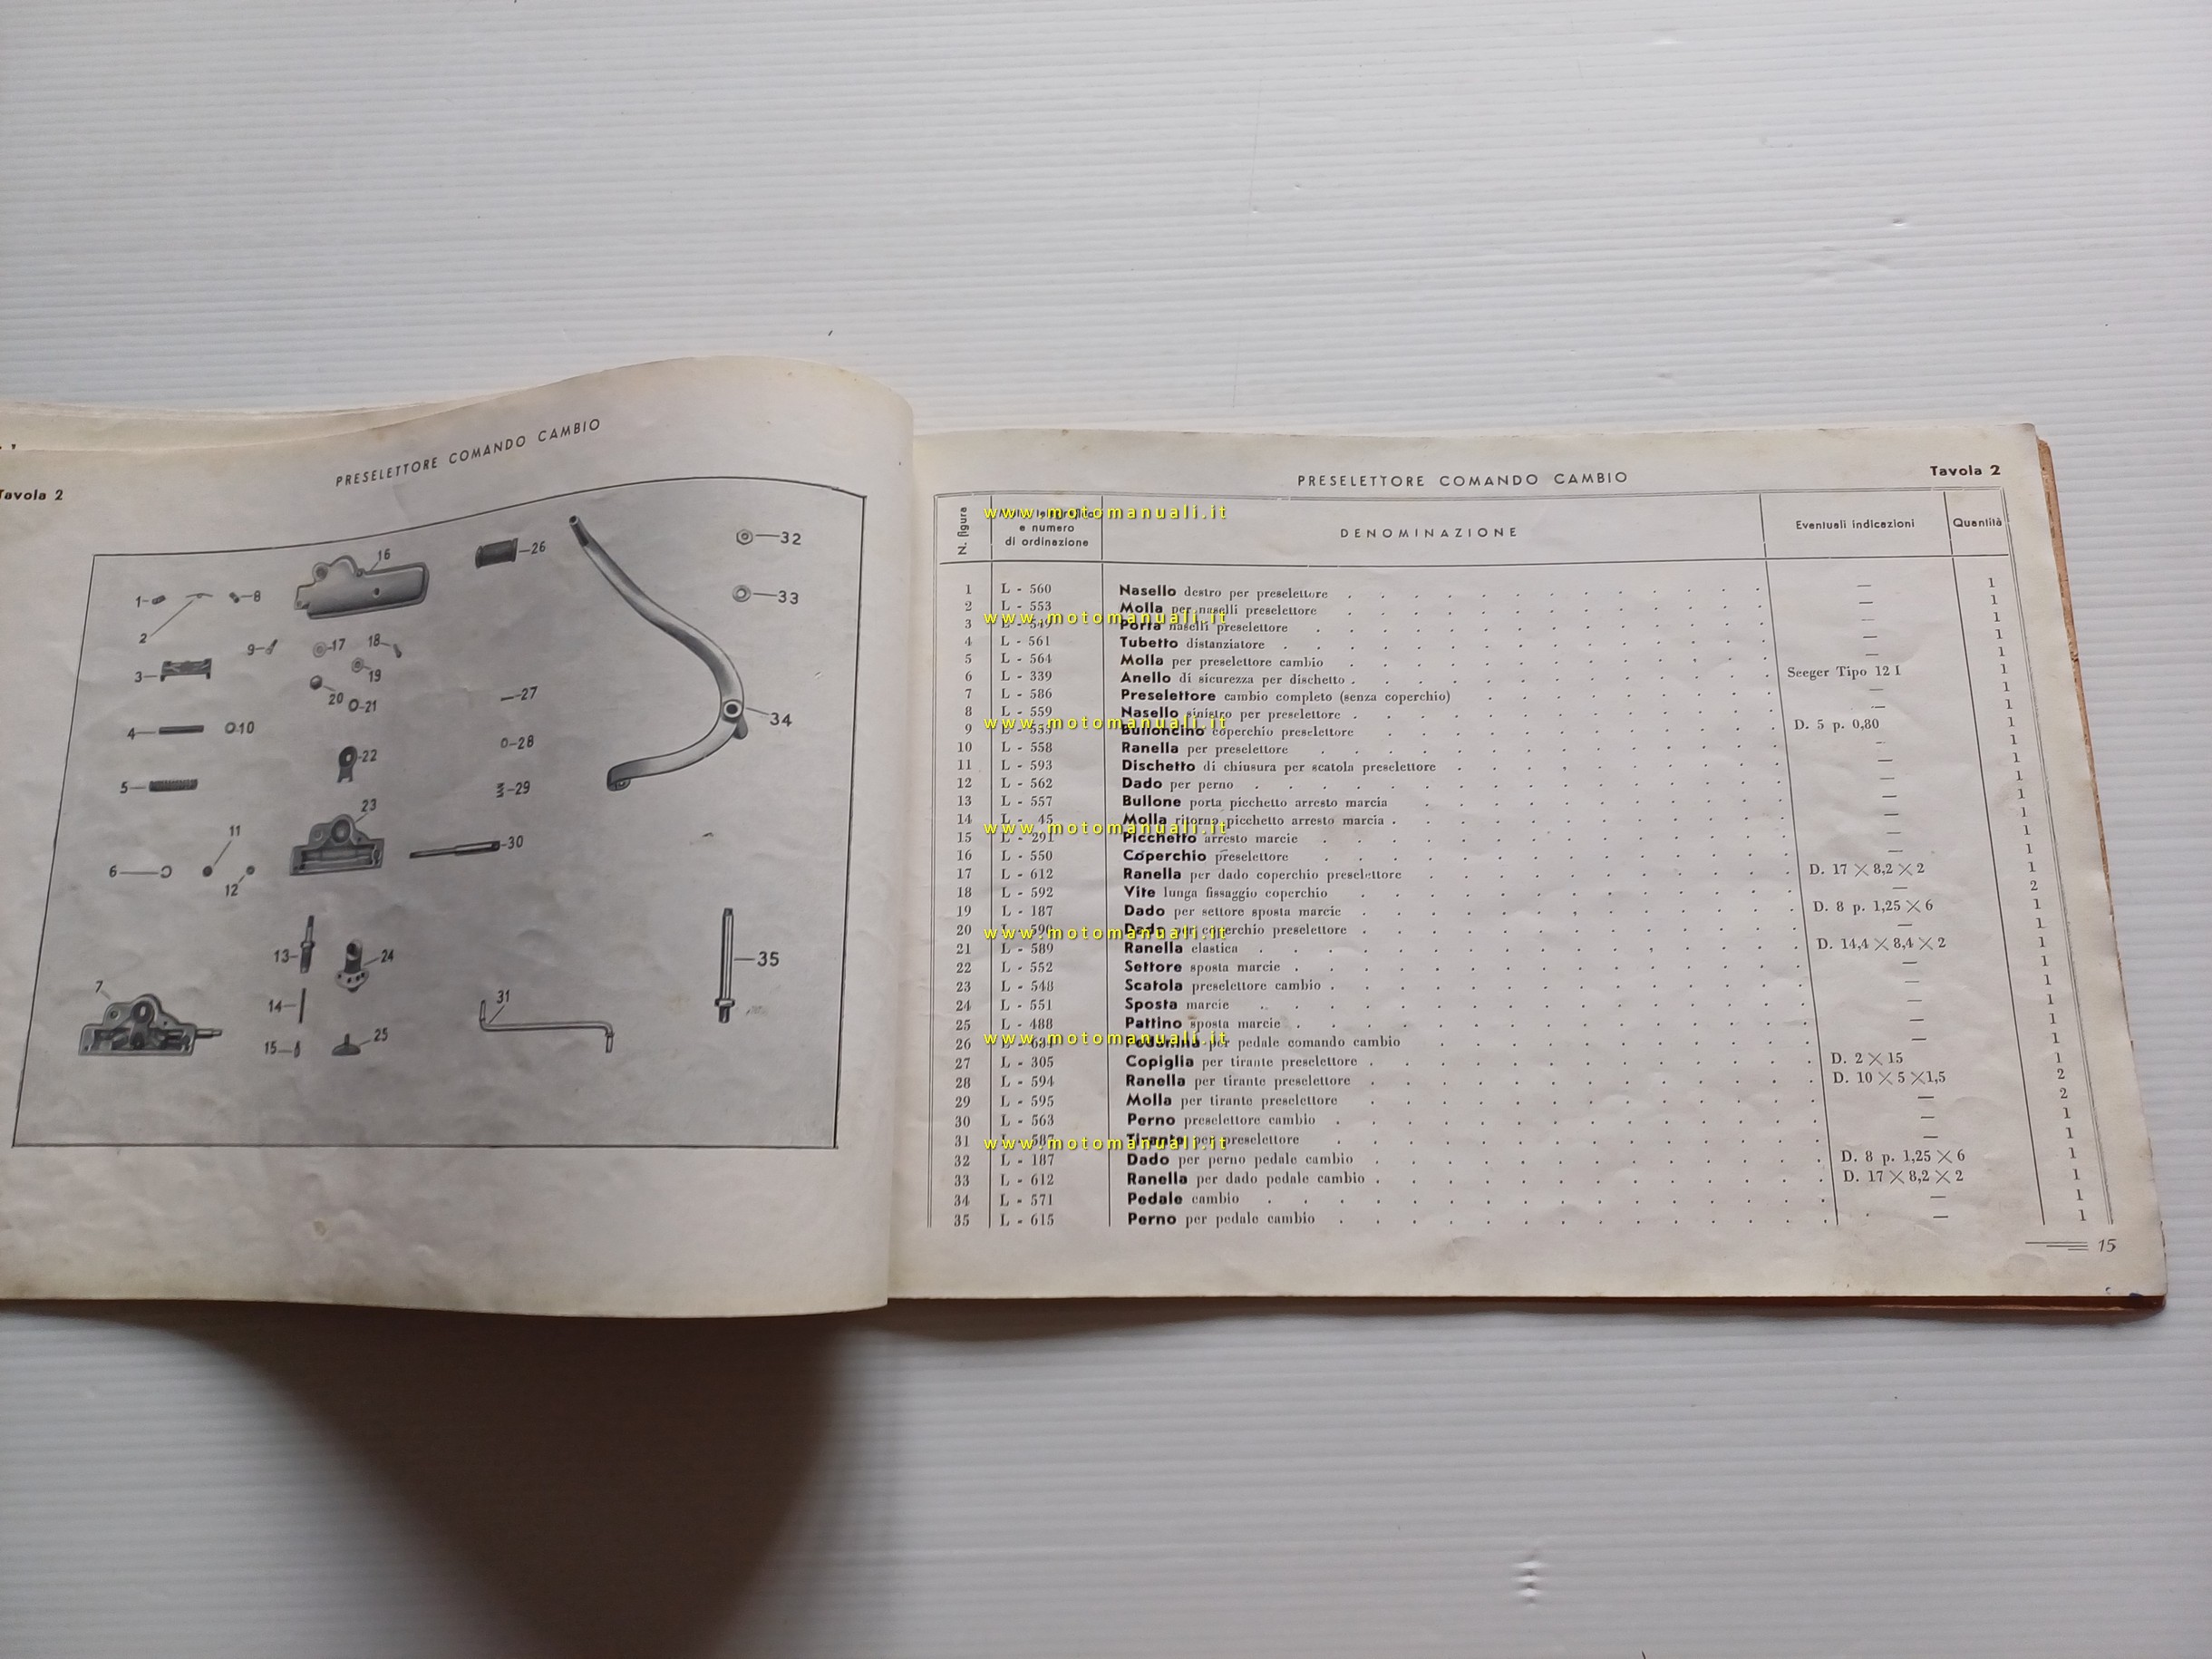 Tavola 2
PRESELETTORE COMANDO CAMBIO
1
2
3
4
5
6
7
8
9
10
11
12
13
14
15
16
17
18
19
20
21
22
23
24
25
26
27
28
29
30
31
32
33
34
35
PRESELETTORE COMANDO CAMBIO
Tavola 2
N. figura
e numero
di ordinazione
DENOMINAZIONE
Eventuali indicazioni
Quantità
1 L - 560 Nasello destro per preselettore — 1
2 L - 553 Molla per naselli preselettore — 1
3 Porta naselli preselettore — 1
4 L - 561 Tubetto distanziatore — 1
5 L - 564 Molla per preselettore cambio — 1
6 L - 339 Anello di sicurezza per dischetto Seeger Tipo 12 I 1
7 L - 586 Preselettore cambio completo (senza coperchio) — 1
8 L - 559 Nasello sinistro per preselettore — 1
9 Bulloncino coperchio preselettore D. 5 p. 0,80 1
10 L - 558 Ranella per preselettore — 1
11 L - 593 Dischetto di chiusura per scatola preselettore — 1
12 L - 562 Dado per perno — 1
13 L - 557 Bullone porta picchetto arresto marcia — 1
14 L - 45 Molla ritorno picchetto arresto marcia — 1
15 L - 291 Picchetto arresto marcie — 1
16 L - 550 Coperchio preselettore — 1
17 L - 612 Ranella per dado coperchio preselettore D. 17 × 8,2 × 2 1
18 L - 592 Vite lunga fissaggio coperchio — 2
19 L - 187 Dado per settore sposta marcie D. 8 p. 1,25 × 6 1
20 Dado per coperchio preselettore — 1
21 L - 589 Ranella elastica D. 14,4 × 8,4 × 2 1
22 L - 552 Settore sposta marcie — 1
23 L - 548 Scatola preselettore cambio — 1
24 L - 551 Sposta marcie — 1
25 L - 488 Pattino sposta marcie — 1
26 per pedale comando cambio — 1
27 L - 305 Copiglia per tirante preselettore D. 2 × 15 1
28 L - 594 Ranella per tirante preselettore D. 10 × 5 × 1,5 2
29 L - 595 Molla per tirante preselettore — 2
30 L - 563 Perno preselettore cambio — 1
31 Tirante per preselettore — 1
32 L - 187 Dado per perno pedale cambio D. 8 p. 1,25 × 6 1
33 L - 612 Ranella per dado pedale cambio D. 17 × 8,2 × 2 1
34 L - 571 Pedale cambio — 1
35 L - 615 Perno per pedale cambio — 1
15
www.motomanuali.it
www.motomanuali.it
www.motomanuali.it
www.motomanuali.it
www.motomanuali.it
www.motomanuali.it
www.motomanuali.it